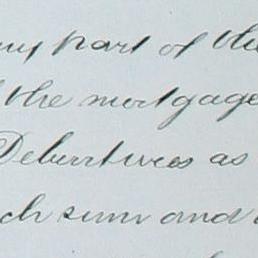 any part of the
the mortgage
Debentures as
such sum and